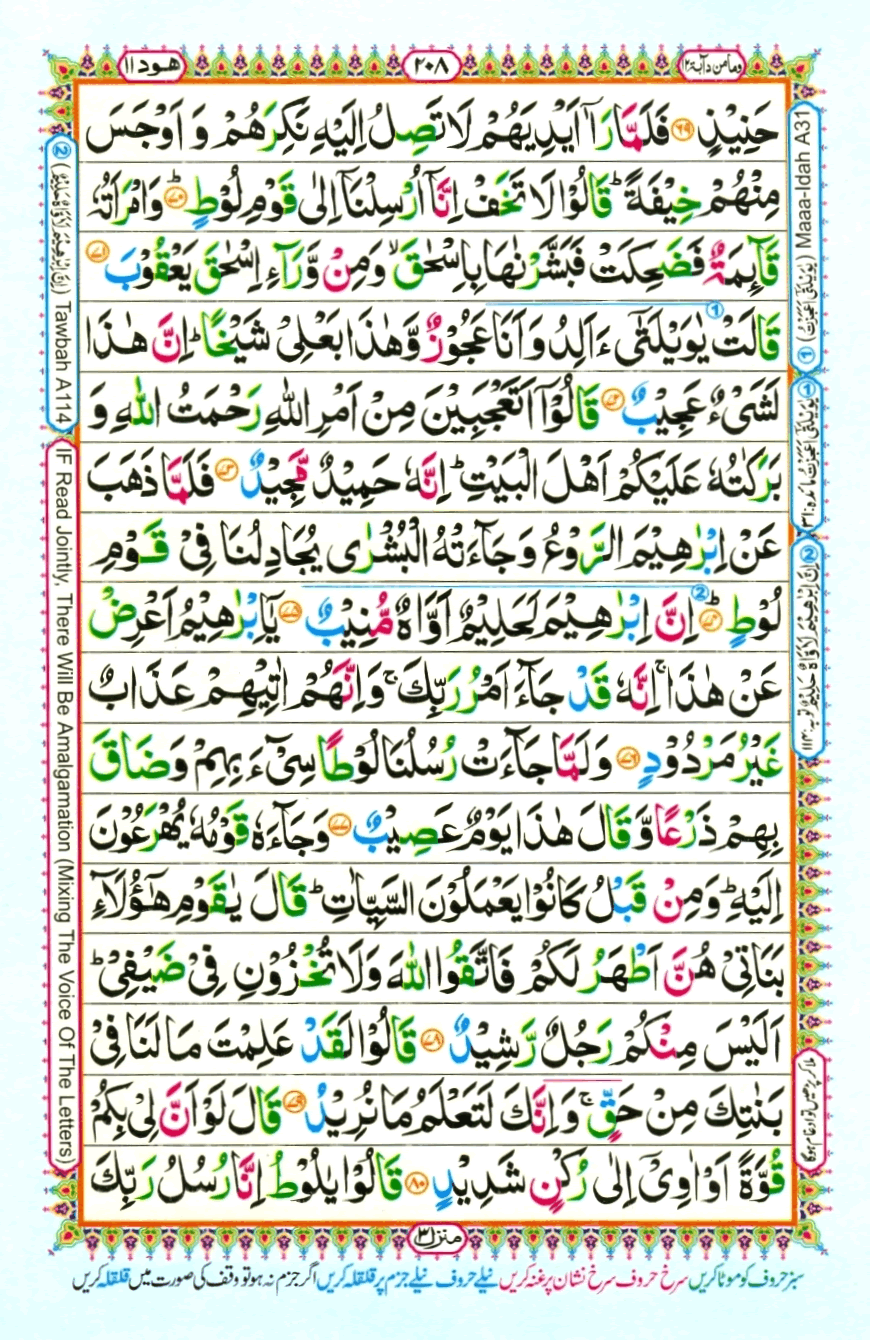 وما من دآبة ١٢
٢٠٨
هود ١١
حَنِيْذٍ ۶۹ فَلَمَّا رَاٰۤ اَيْدِيَهُمْ لَا تَصِلُ اِلَيْهِ نَكِرَهُمْ وَ اَوْجَسَ
مِنْهُمْ خِيْفَةً ؕ قَالُوْا لَا تَخَفْ اِنَّاۤ اُرْسِلْنَاۤ اِلٰى قَوْمِ لُوْطٍ ؕ ۷۰ وَامْرَاَتُهٗ
قَآئِمَةٌ فَضَحِكَتْ فَبَشَّرْنٰهَا بِاِسْحٰقَ ۙ وَمِنْ وَّرَآءِ اِسْحٰقَ يَعْقُوْبَ ۷۱
قَالَتْ يٰوَيْلَتٰٓى ءَاَلِدُ وَ اَنَا عَجُوْزٌ وَّهٰذَا بَعْلِىْ شَيْخًا ؕ اِنَّ هٰذَا
لَشَىْءٌ عَجِيْبٌ ۷۲ قَالُوْۤا اَتَعْجَبِيْنَ مِنْ اَمْرِ اللّٰهِ رَحْمَتُ اللّٰهِ وَ
بَرَكٰتُهٗ عَلَيْكُمْ اَهْلَ الْبَيْتِ ؕ اِنَّهٗ حَمِيْدٌ مَّجِيْدٌ ۷۳ فَلَمَّا ذَهَبَ
عَنْ اِبْرٰهِيْمَ الرَّوْعُ وَجَآءَتْهُ الْبُشْرٰى يُجَادِلُنَا فِىْ قَوْمِ
لُوْطٍ ؕ ۷۴ اِنَّ اِبْرٰهِيْمَ لَحَلِيْمٌ اَوَّاهٌ مُّنِيْبٌ ۷۵ يٰۤاِبْرٰهِيْمُ اَعْرِضْ
عَنْ هٰذَا ۚ اِنَّهٗ قَدْ جَآءَ اَمْرُ رَبِّكَ ۚ وَاِنَّهُمْ اٰتِيْهِمْ عَذَابٌ
غَيْرُ مَرْدُوْدٍ ۷۶ وَلَمَّا جَآءَتْ رُسُلُنَا لُوْطًا سِىْٓءَ بِهِمْ وَضَاقَ
بِهِمْ ذَرْعًا وَّقَالَ هٰذَا يَوْمٌ عَصِيْبٌ ۷۷ وَجَآءَهٗ قَوْمُهٗ يُهْرَعُوْنَ
اِلَيْهِ ؕ وَمِنْ قَبْلُ كَانُوْا يَعْمَلُوْنَ السَّيِّاٰتِ ؕ قَالَ يٰقَوْمِ هٰٓؤُلَآءِ
بَنَاتِىْ هُنَّ اَطْهَرُ لَكُمْ فَاتَّقُوا اللّٰهَ وَلَا تُخْزُوْنِ فِىْ ضَيْفِىْ ؕ
اَلَيْسَ مِنْكُمْ رَجُلٌ رَّشِيْدٌ ۷۸ قَالُوْا لَقَدْ عَلِمْتَ مَا لَنَا فِىْ
بَنٰتِكَ مِنْ حَقٍّ ۚ وَاِنَّكَ لَتَعْلَمُ مَا نُرِيْدُ ۷۹ قَالَ لَوْ اَنَّ لِىْ بِكُمْ
قُوَّةً اَوْ اٰوِىْۤ اِلٰى رُكْنٍ شَدِيْدٍ ۸۰ قَالُوْا يٰلُوْطُ اِنَّا رُسُلُ رَبِّكَ
منزل ٣
① (يٰوَيْلَتٰٓى اَعَجَزْتُ) Maaa-Idah A31
① يٰوَيْلَتٰٓى اَعَجَزْتُ مائدہ: ۳۱
② اِنَّ اِبْرٰهِيْمَ لَاَوَّاهٌ حَلِيْمٌ توبہ: ۱۱۴
ملا کر پڑھیں تو ادغام ہوگا
② (اِنَّ اِبْرٰهِيْمَ لَاَوَّاهٌ حَلِيْمٌ) Tawbah A114
IF Read Jointly, There Will Be Amalgamation (Mixing The Voice Of The Letters)
سبز حروف کو موٹا کریں سرخ حروف سرخ نشان پر غنہ کریں نیلے حروف نیلے جزم پر قلقلہ کریں اگر جزم نہ ہو تو وقف کی صورت میں قلقلہ کریں